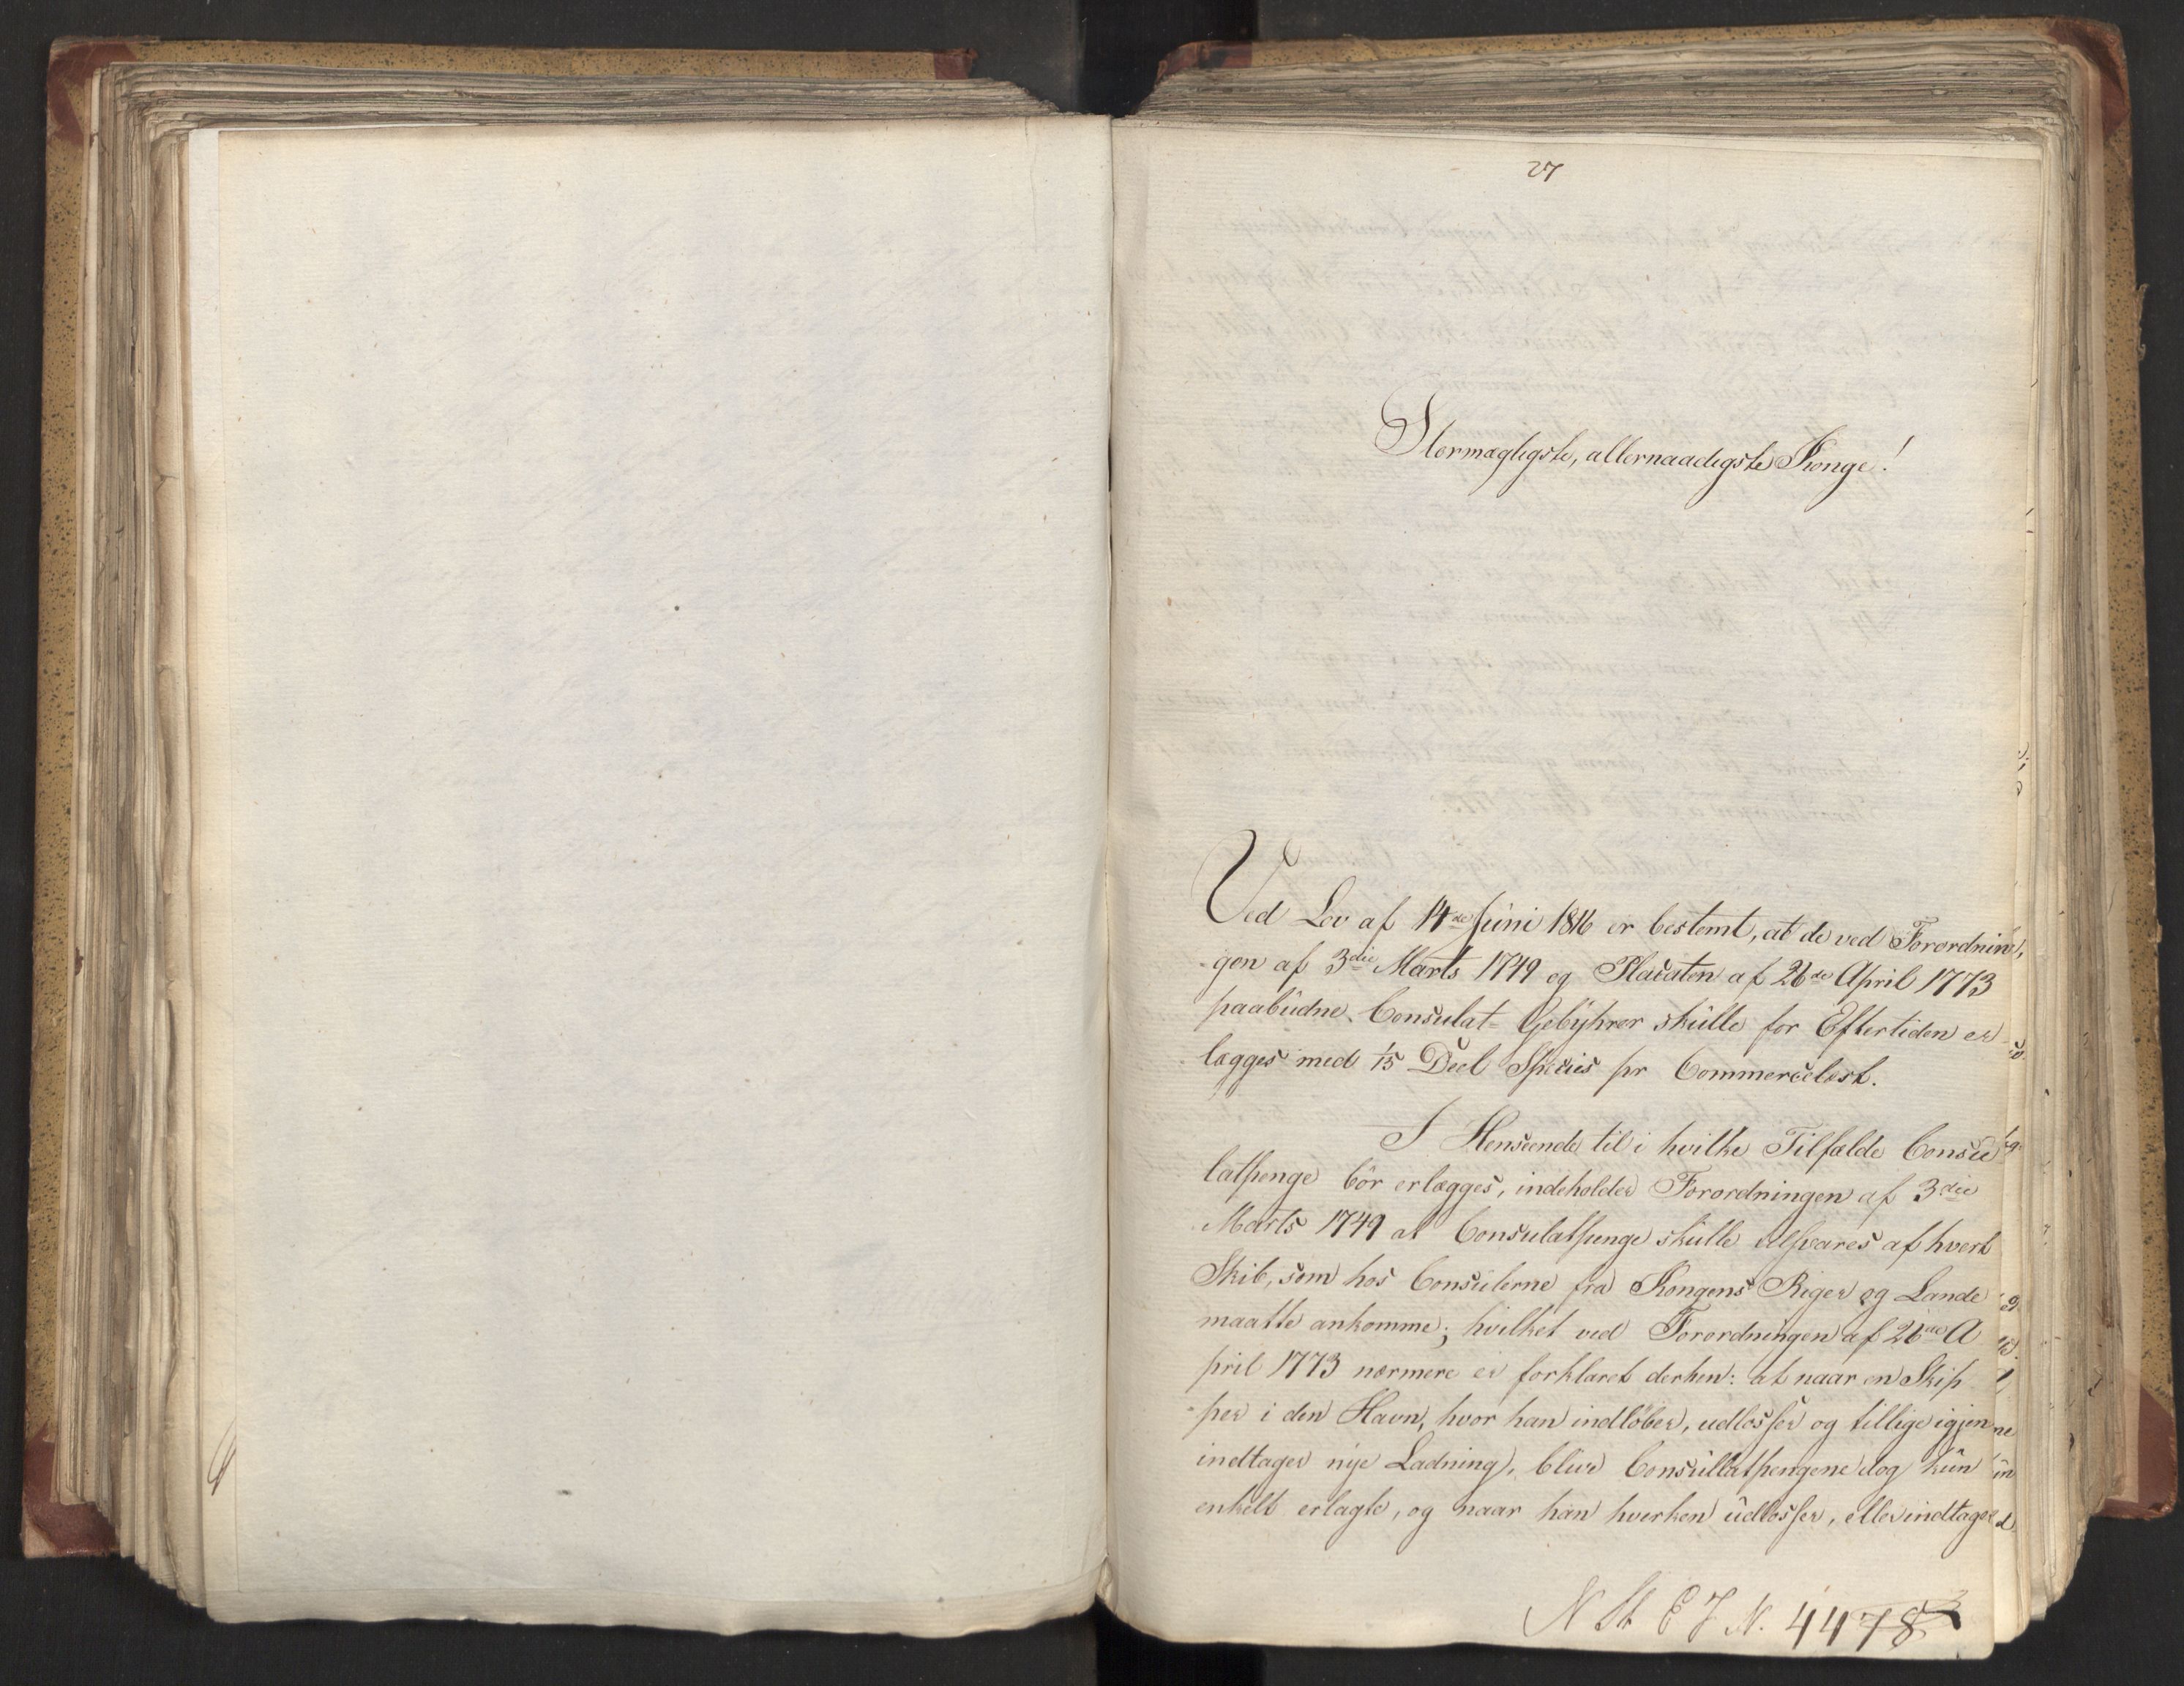 27
Stormægtigste, allernaadigste Konge!
Ved Lov af 14de Juni 1816 er bestemt, at de ved Forordnin,
gen af 3die Marts 1749 og Placaten af 26de April 1773
paabudne Consulat-Gebyhrer skulle for Eftertiden er-
lægges med 1/15 Deel Species pr Commercelæst.
I Henseende til i hvilke Tilfælde Consu
latpenge bör erlægges, indeholder Forordningen af 3die
Marts 1749 at Consulatpenge skulle tilsvares af hvert
Skib, som hos Consulerne fra Kongens Riger og Lande
maatte ankomme; hvilket ved Forordningen af 26de A
pril 1773 nærmere er forklaret derhen: at naar en Skip
per i den Havn, hvor han indløber, udlosser og tillige igjen
indtager nye Ladning, blive Consullatpengene dog kun
enkelt erlagte, og naar han hverken udlosser, eller indtager
N St E J N. 4478